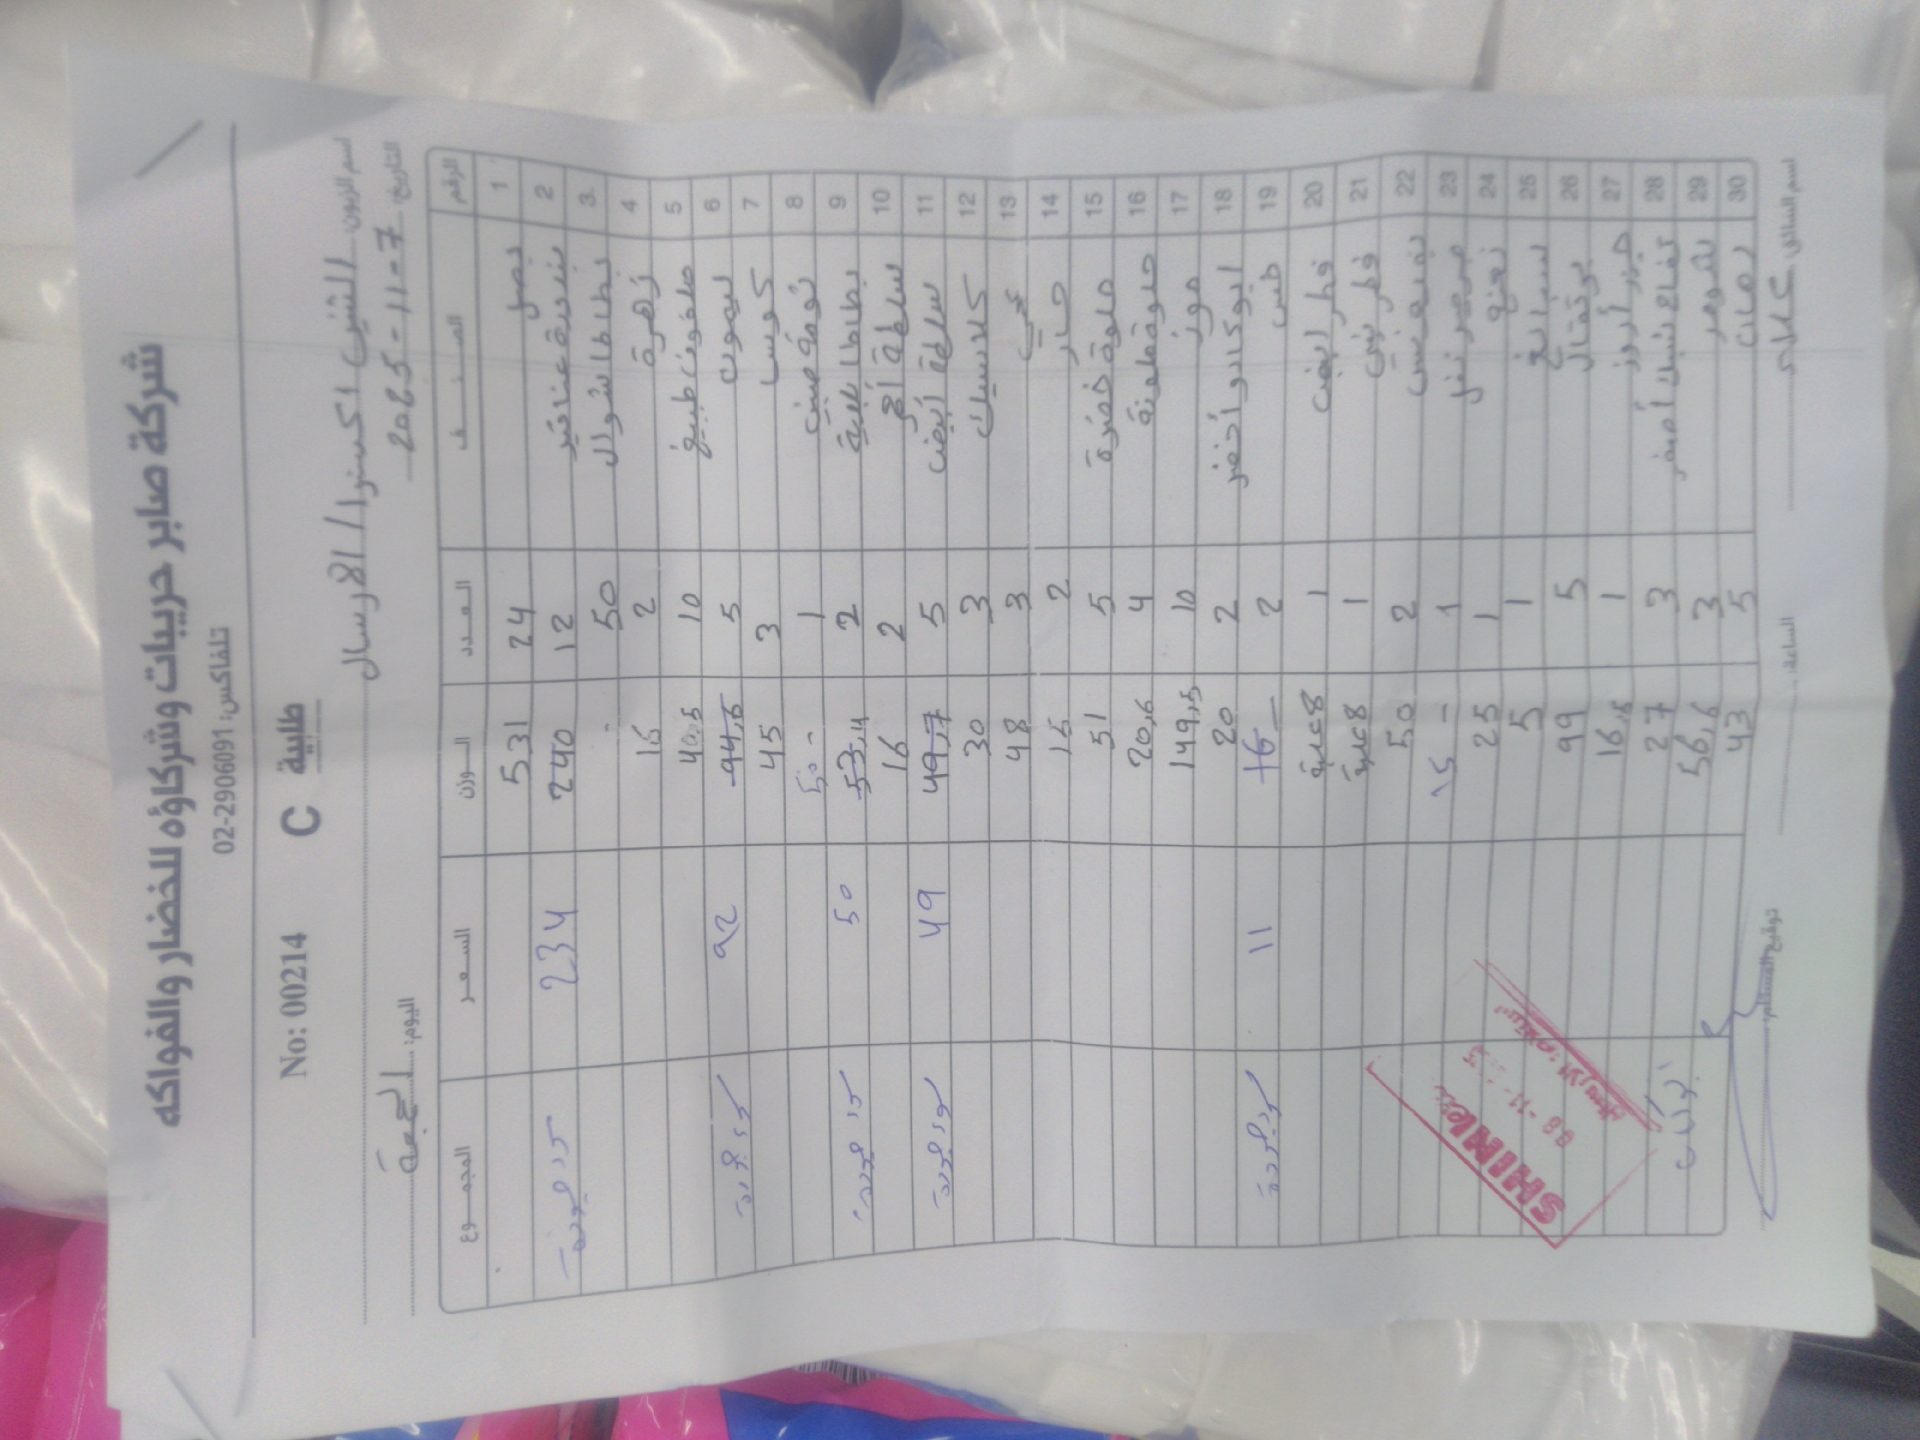 شركة صابر حريبات وشركاؤه للخضار والفواكه
تلفاكس: 02-2906091
No: 00214 C طلبية
اسم الزبون الشني اكسترا / الارسال
التاريخ: 2025-11-7 اليوم: الجمعة
الرقم الصنف العدد الوزن السعر المجموع
1 بصل 24 531
2 بندورة عناقيد 12 240 234
3 بطاطا شوال 50
4 زهرة 2 15
5 ملفوف طبيخ 10 40,5
6 ليمون 5 94,5 92
7 كوسا 3 45
8 1 50
9 بطاطا 2 53,4 50
10 سلطة أ 2 16
11 سلطة أبيض 5 49,7 49
12 كلاسيك 3 30
13 3 48
14 خيار 2 15
15 حلوة خضرة 5 51
16 حلوة ملونة 4 20,6
17 موز 10 149,5
18 افوكادو أخضر 2 20
19 خس 2 16 11
20 فطر ابيض 1 8 علبة
21 فطر بني 1 8 علبة
22 2 50
23 1 15
24 نعنع 1 25
25 سبانخ 1 5
26 برتقال 5 99
27 1 16,5
28 تفاح أصفر 3 27
29 شومر 3 56,6
30 رمان 5 43
اسم السائق علاء الساعة: توقيع المستلم:
SHINI
08-11-2025